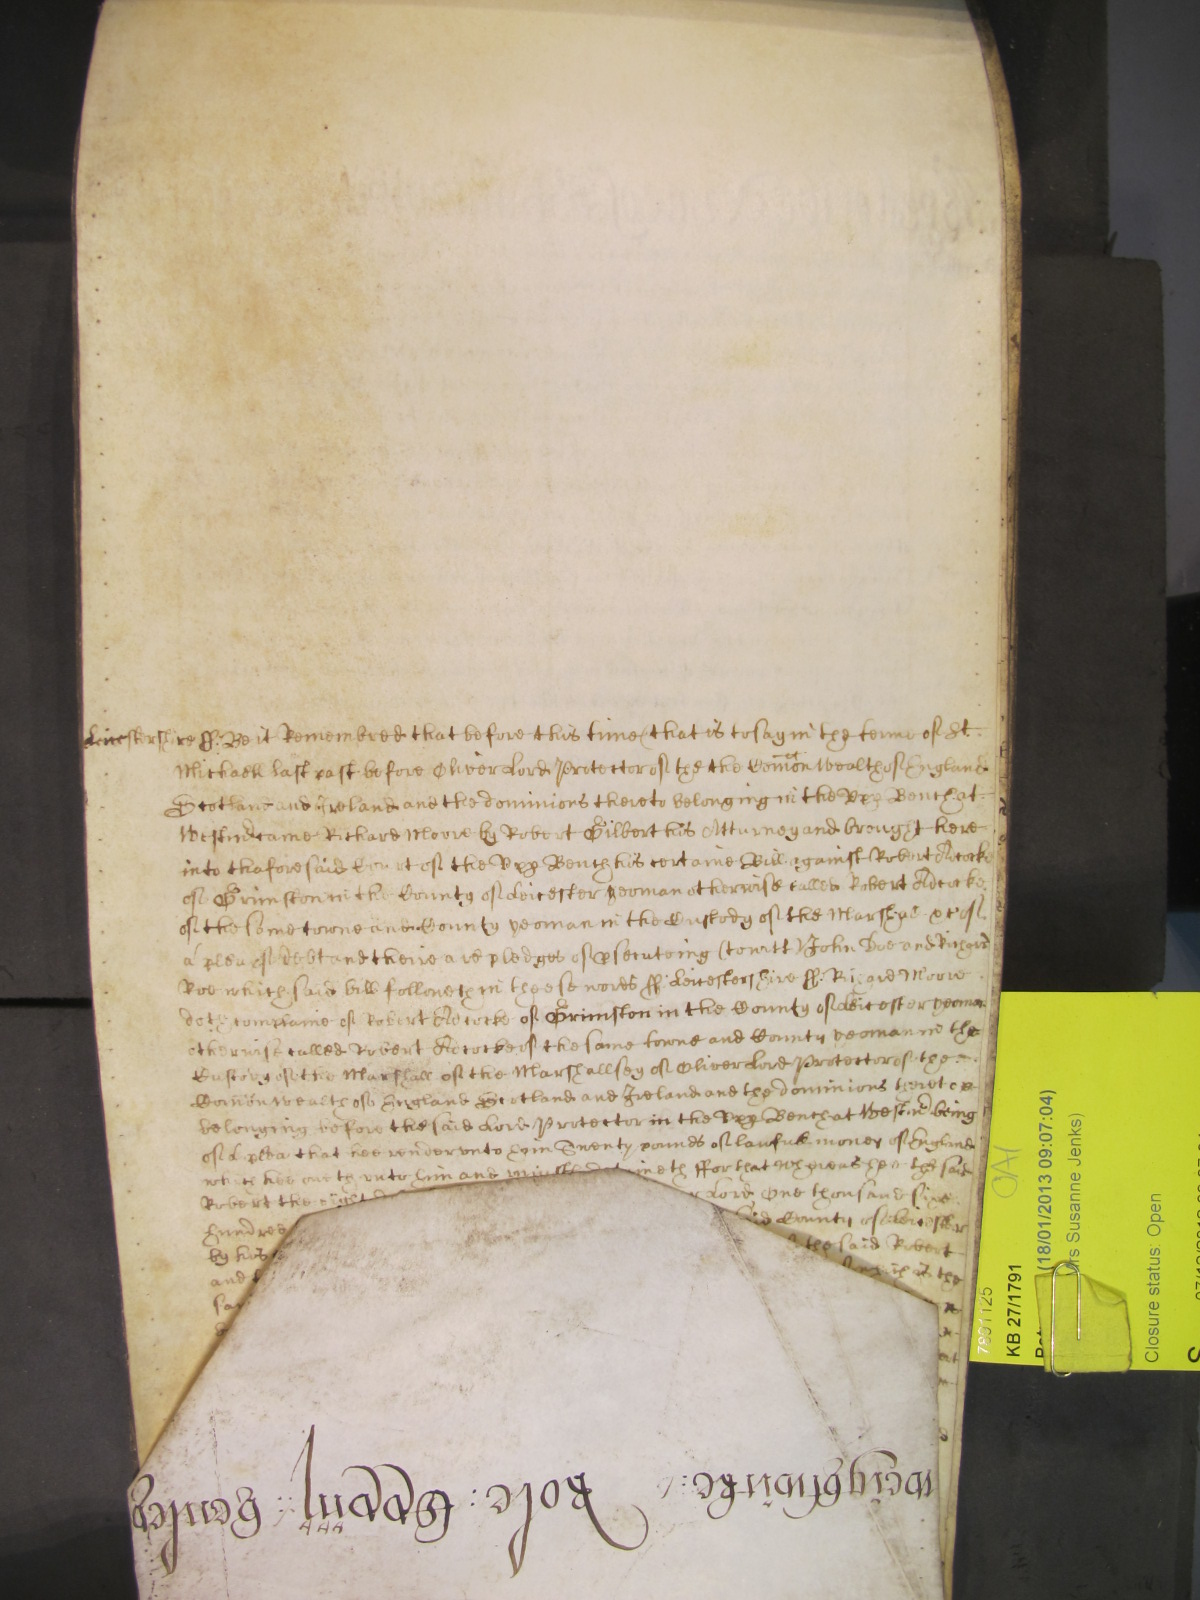 Leicestershire ff. Be it Remembred that before this time (that is to say in the terme of St.
Michaell last past before Oliver Lord Protector of the the Comon Wealth of England
Scotland and Ireland and the dominions thereto belonging in the Vpp Bench at
Westm came Richard Moore by Robert Gilbert his Atturney and brought here
into thaforesaid Court of the Vpp Bench his certaine Bill against Robert Adcocke
of Grimston in the County of Leicester yeoman otherwise called Robert Adcocke
of the same towne and County yeoman in the Custody of the Marshall &c of
a plea of debt and theire are pledges of psecuteing (to witt) John Doe and Richard
Roe which said bill followeth in theese words ff. Leicestershire ff. Richard Moore
doth complaine of Robert Adcocke of Grimston in the County of Leicester yeoman
otherwise called Robert Adcocke of the same towne and County yeoman in the
Custody of the Marshall of the Marshallsey of Oliver Lord Protector of the
Comon Wealth of England Scotland and Ireland and the dominions thereto
belonging before the said Lord Protector in the Vpp Bench at Westm being
of a plea that hee render vnto him Twenty pounds of lawfull money of England
which hee oweth vnto him and vniustly deteineth ffor that Whereas hee the said
Robert the eight Lord One thousand sixe
hundred said County of Leicester
by his the said Robert
and that the
Role:
7891125
KB 27/1791
(18/01/2013 09:07:04)
rs Susanne Jenks)
Closure status: Open